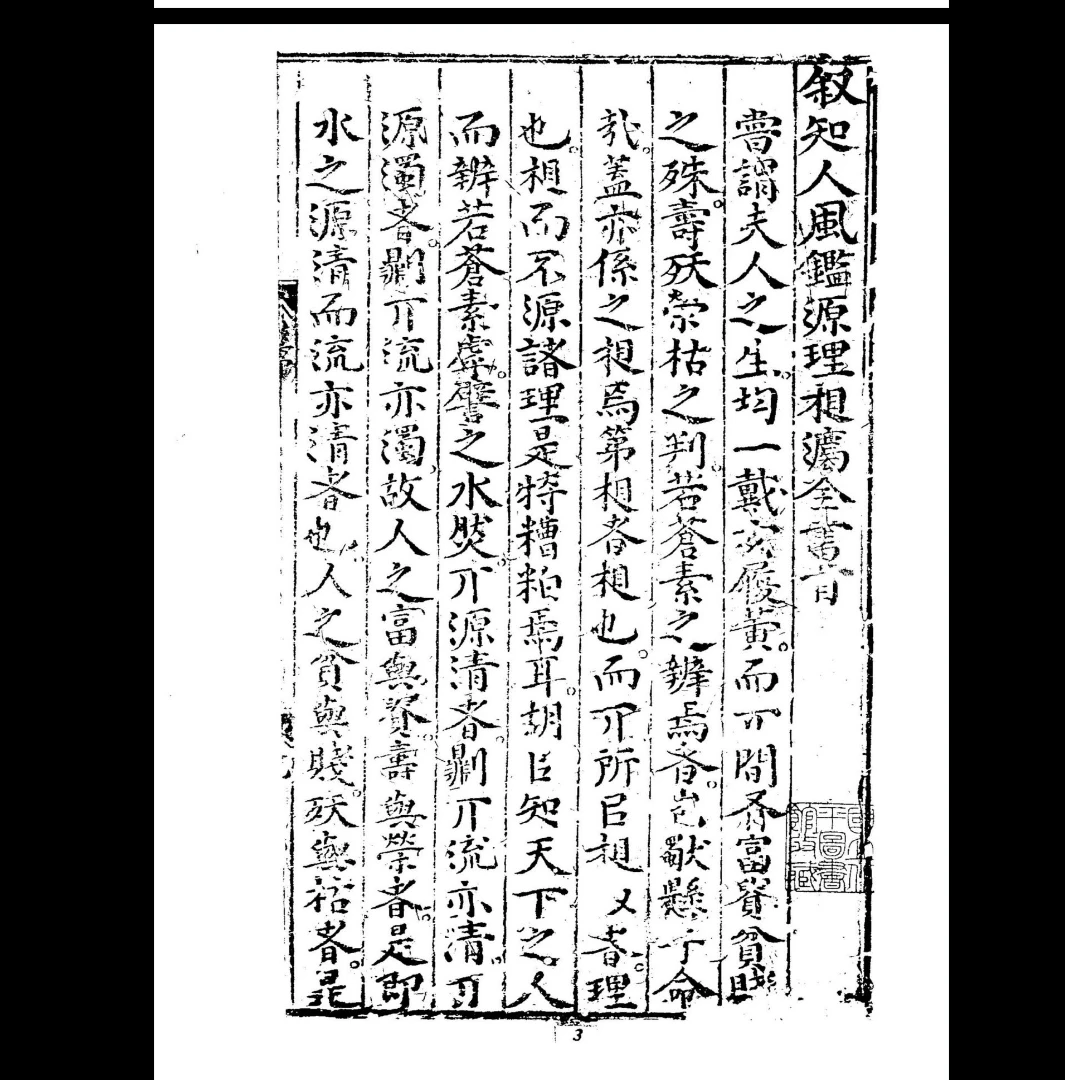 叙知人風鑑源理相灋全書
嘗謂夫人之生。均一戴玄履黃。而丌間有富貴貧賤
之殊。壽殀榮枯之判。若蒼素之辨焉者。豈獨懸于命
哉。蓋亦係之相焉。第相者相也。而丌所㠯相乂者。理
也。相而不源諸理是特糟粕焉耳。胡㠯知天下之人
而辨若蒼素虖。譬之水然。丌源清者。𠟭丌流亦清。丌
源濁者。𠟭丌流亦濁。故人之富與貴。壽與榮者。是即
水之源清而流亦清者也。人之貧與賤。殀與枯者。是
國立北平圖書館收藏
3